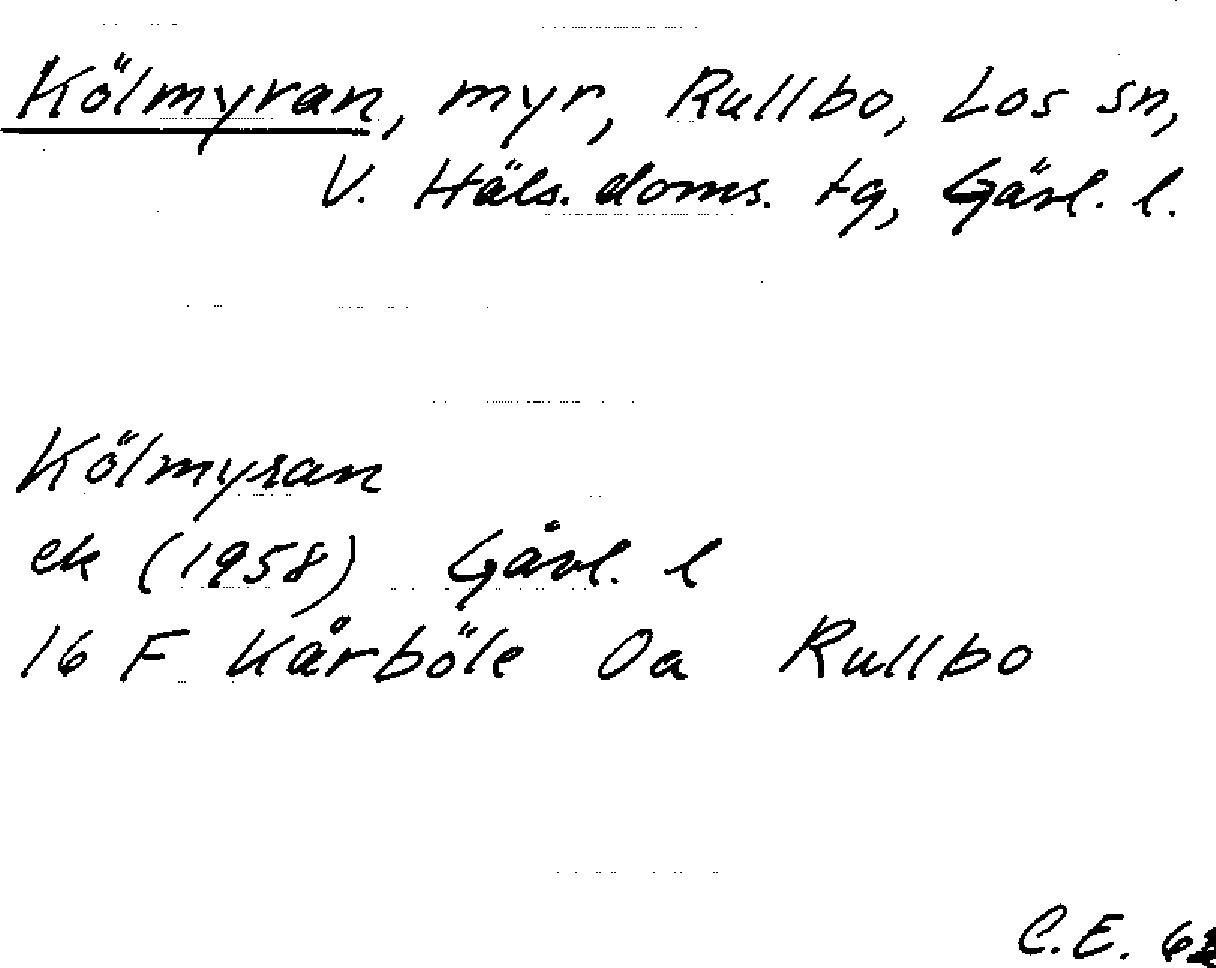 Kölmyran, myr, Rullbo, Los sn,
V. Häls. doms. tg, Gävl. l.
Kölmyran
ek (1958) Gävl. l
16 F Kårböle 0a Rullbo
C.E.